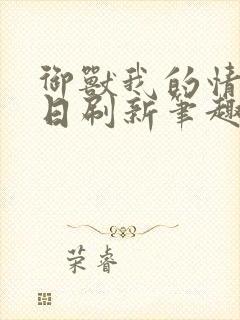 御兽我的情
日刷新笔趣
荣睿